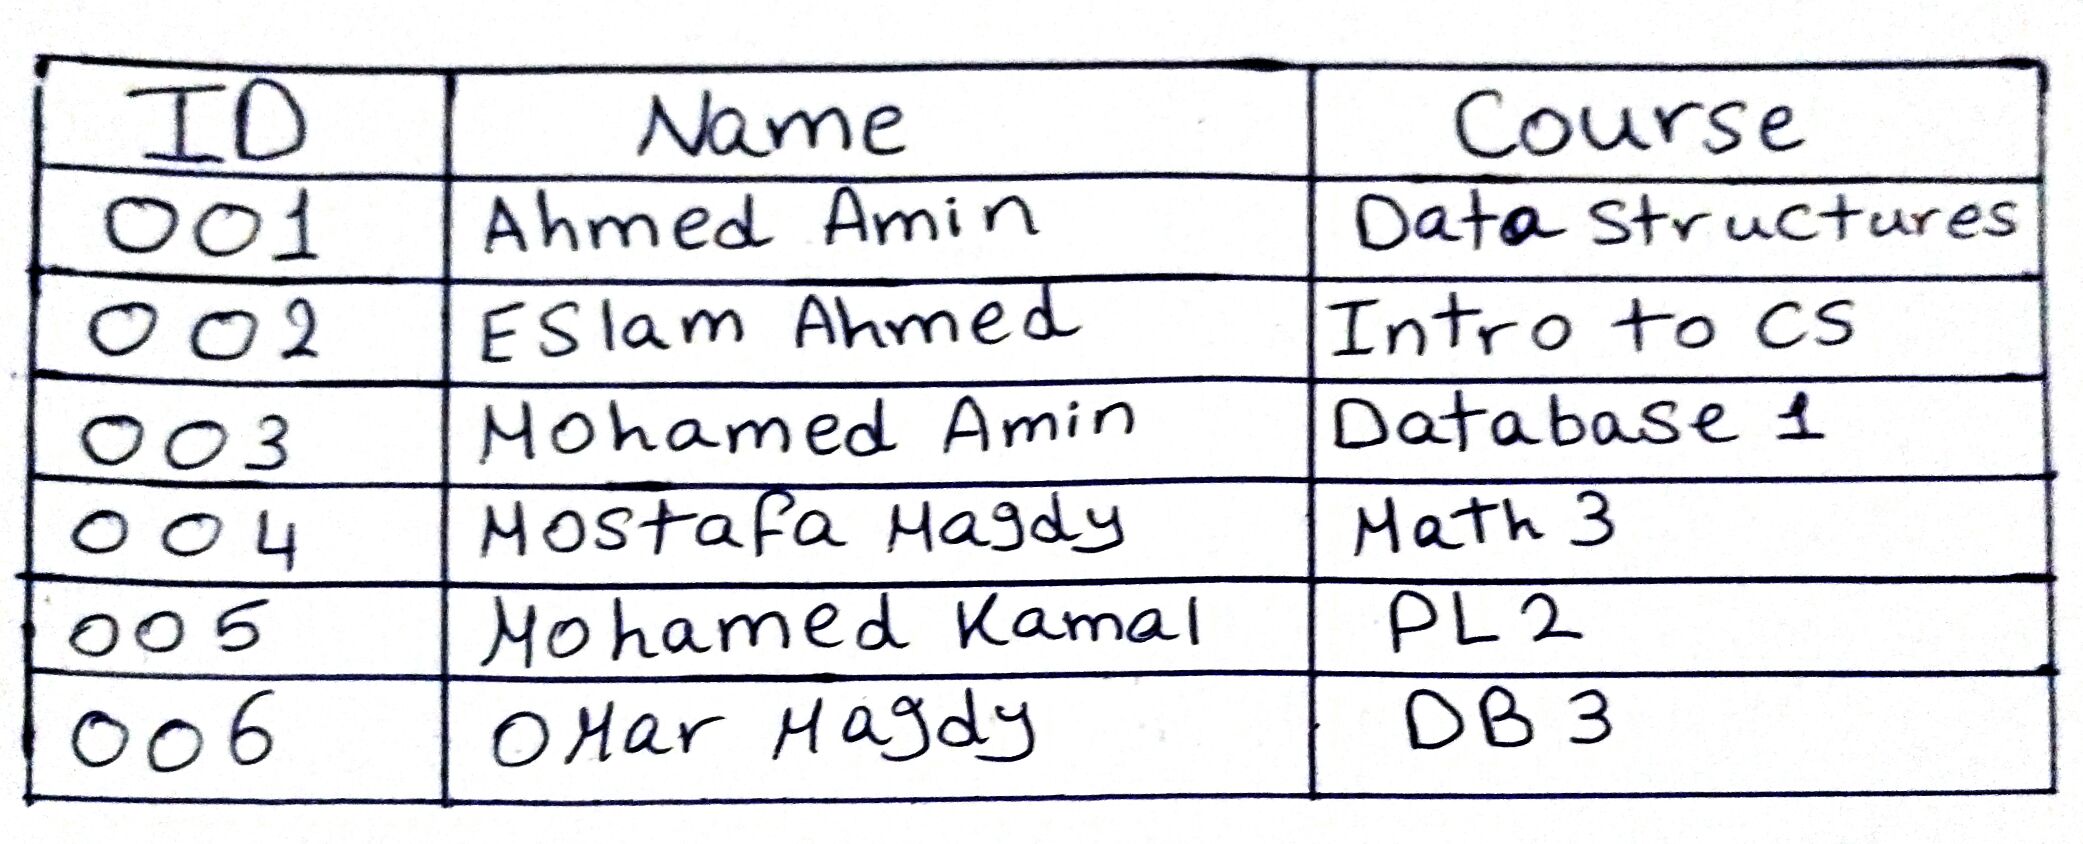 ID Name Course
001 Ahmed Amin Data Structures
002 ESlam Ahmed Intro to CS
003 Mohamed Amin Database 1
004 Mostafa Magdy Math 3
005 Mohamed Kamal PL 2
006 OMar Magdy DB 3